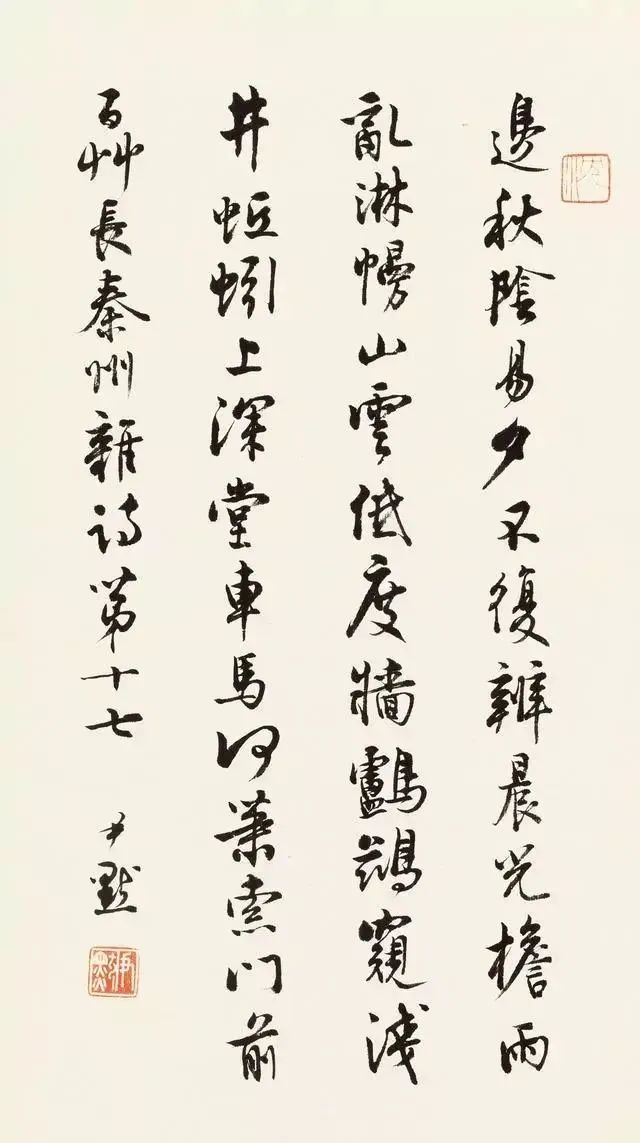 邊秋陰易夕不復辨晨光檐雨
亂淋幔山雲低度牆鸕鷀窺浅
井蚯蚓上深堂車馬何蕭索門前
百艸長秦州雜诗第十七
尹默